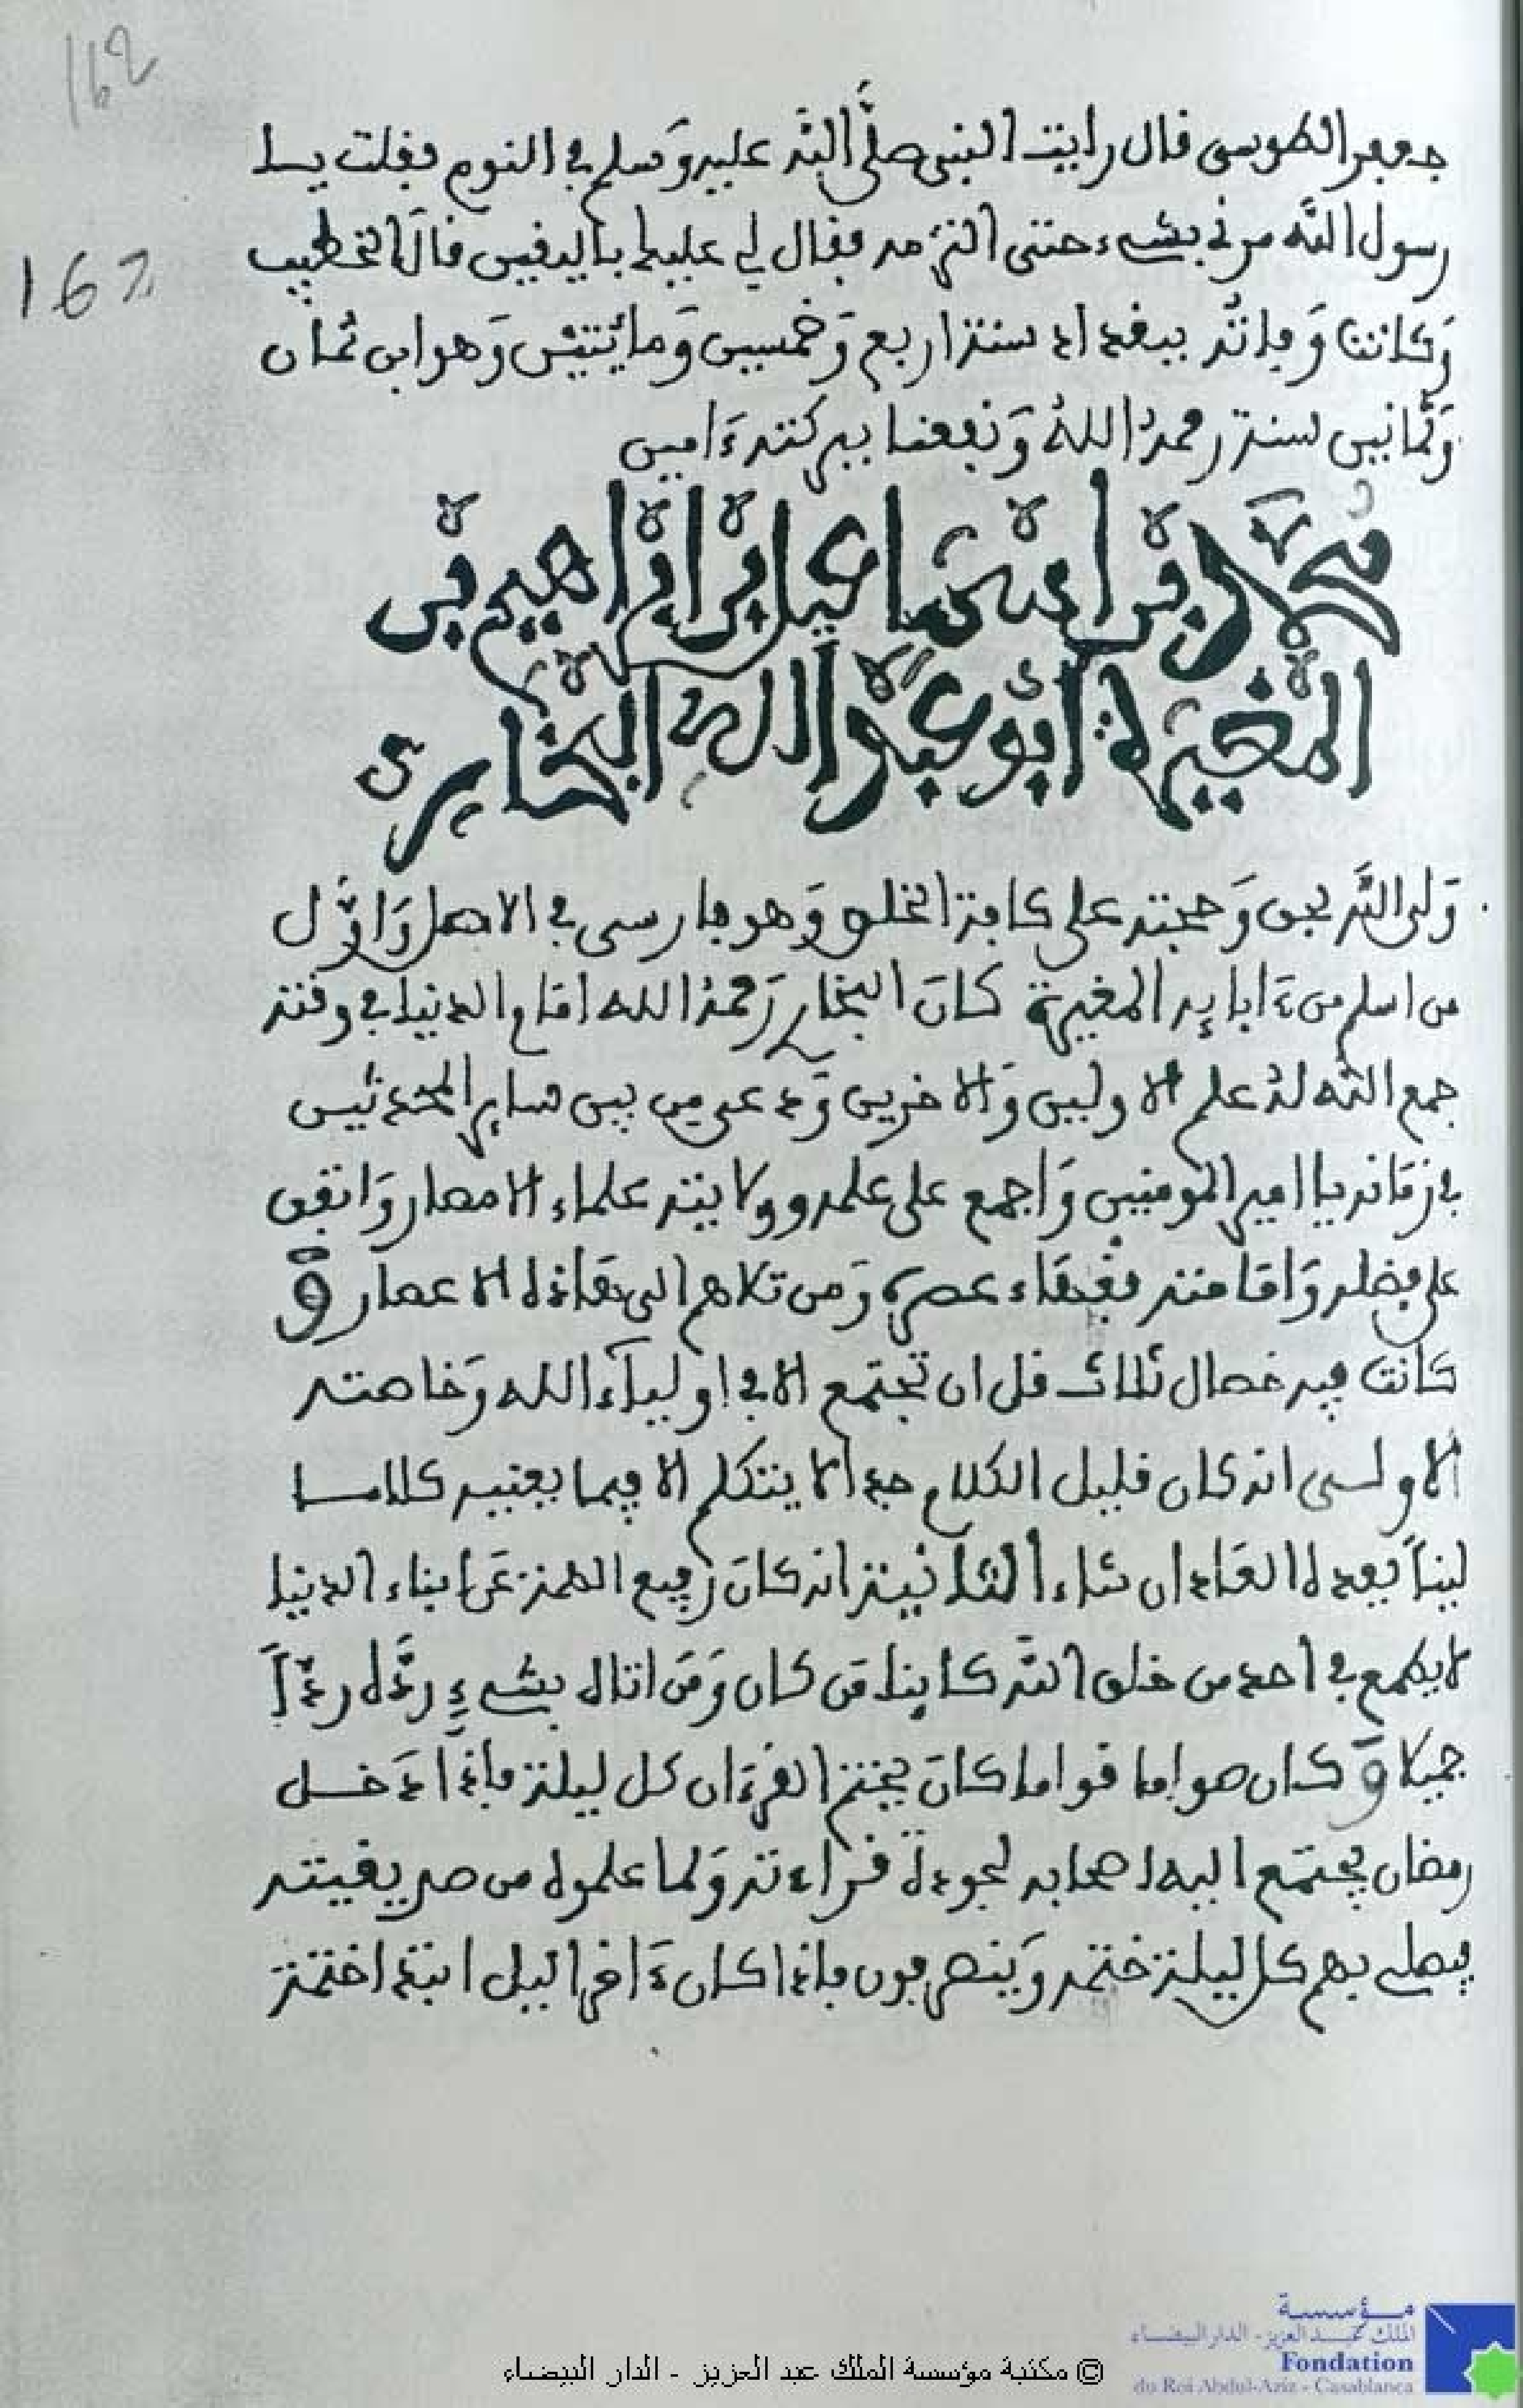 162
جعفر الطوسي قال رايت النبي صلى الله عليه وسلم في النوم فقلت يا
رسول الله مرني بشيء حتى الزمه فقال لي عليك باليقين قال الخطيب
167
وكانت وفاته ببغداد سنة اربع وخمسين ومايتين وهو ابن ثمان
وثمانين سنة رحمه الله ونفعنا ببركته ءامين
محمد بن اسماعيل بن ابراهيم بن
المغيرة ابو عبد الله البخاري
ولى الله بحق وحجته على كافة الخلق وهو فارسي في الاصل واول
من اسلم من ءابايه المغيرة كان البخاري رحمه الله امام الدنيا في وقته
جمع الله له علم الاولين والاخرين ودعي من بين ساير المحدثين
في زمانه يا امير المومنين واجمع على علمه وولايته علماء الامصار واتفق
على فضله وامامته فقهاء عصره ومن تلاهم الى هاذه الاعصار و
كانت فيه خصال ثلاث قل ان تجتمع الا في اولياء الله وخاصته
الاولى انه كان قليل الكلام جدا لا يتكلم الا فيما يعنيه كلاما
لينا يعده العاد ان شاء الثانية انه كان رفيع الهمة عن ابناء الدنيا
لا يطمع في احد من خلق الله كاينا من كان ومن اتاه بشيء رده ردا
جميلا وكان صواما قواما كان يختم القرءان كل ليلة فاذا دخل
رمضان يجتمع اليه اصحابه لجودة قراءته ولما علموه من صريقيته
فيصلي بهم كل ليلة ختمه وينصرفون فاذا كان ءاخر اليل ابتدا ختمة
© مكتبة مؤسسة الملك عبد العزيز - الدار البيضاء
مؤسسة
الملك عبد العزيز - الدار البيضاء
Fondation
du Roi Abdul-Aziz - Casablanca